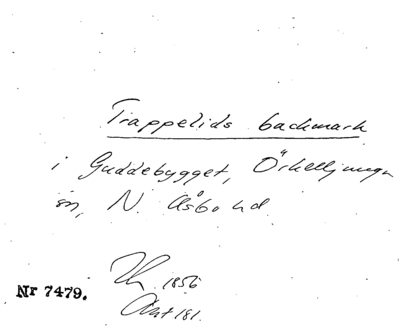 Trappelids backmark
i Guddebygget, Örkelljunga
sn, N. Åsbo hd.
1856
Akt 181.
Nr 7479.